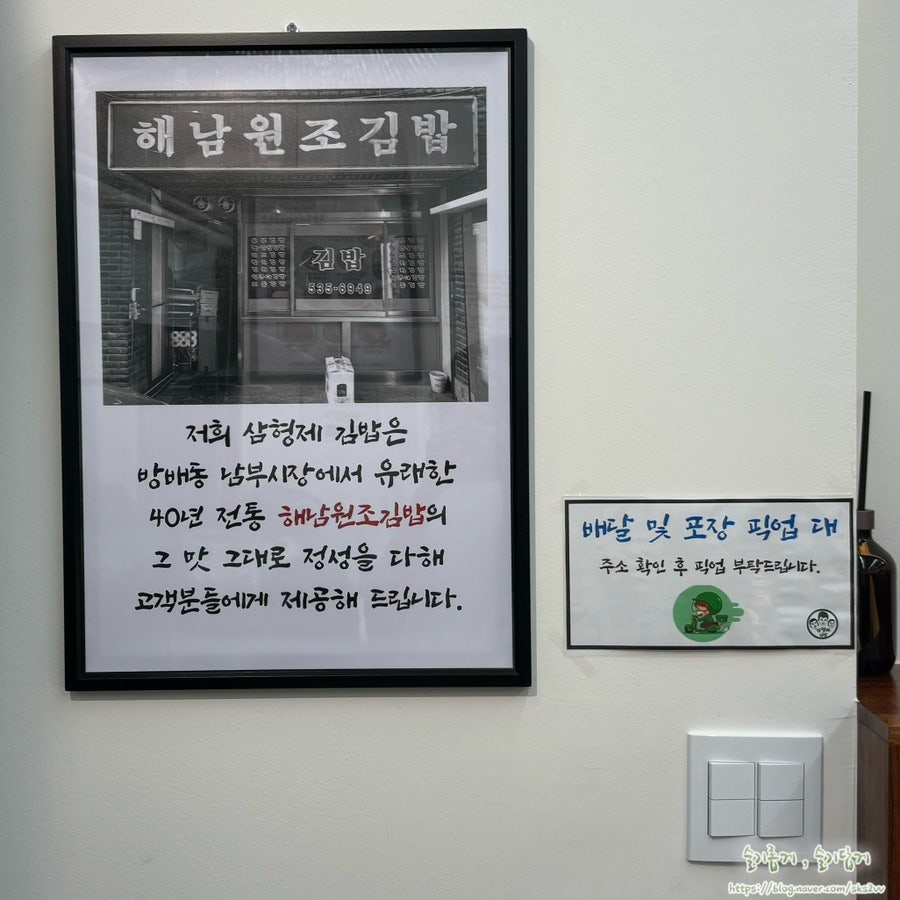 해남원조김밥
김밥
535-6949
저희 삼형제 김밥은
방배동 남부시장에서 유래한
40년 전통 해남원조김밥의
그 맛 그대로 정성을 다해
고객분들에게 제공해 드립니다.
배달 및 포장 픽업 대
주소 확인 후 픽업 부탁드립니다.
슬기롭게, 슬기답게
https://blog.naver.com/sks2vv